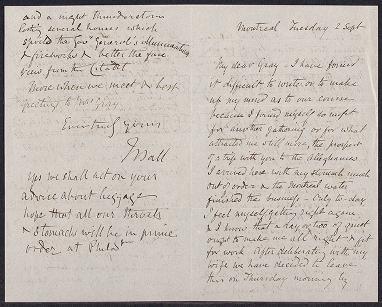 and a night thunderstorm
hitting several houses which
spoiled the Govr General's illuminations
& fireworks & better the fine
view from the Citadel
More when we meet & best
greeting to Mrs Gray.
Ever truly yours
J Ball
Yes we shall act on your
advice about luggage
hope that all our throats
& stomachs will be in prime
order at Philada
Montreal Tuesday 2 Sept.
My dear Gray - I have found
it difficult to write or to make
up my mind as to our course
because I found myself so unfit
for another gathering or for what
attracted me still more, the prospect
of a trip with you to the Alleghanies
I arrived here with my stomach much
out of order & the Montreal water
finished the business - Only to-day
I feel myself getting right again
& I know that a day or two of quiet
ought to make me all right & fit
for work. After deliberating with my
wife we have decided to leave
this on Thursday morning by